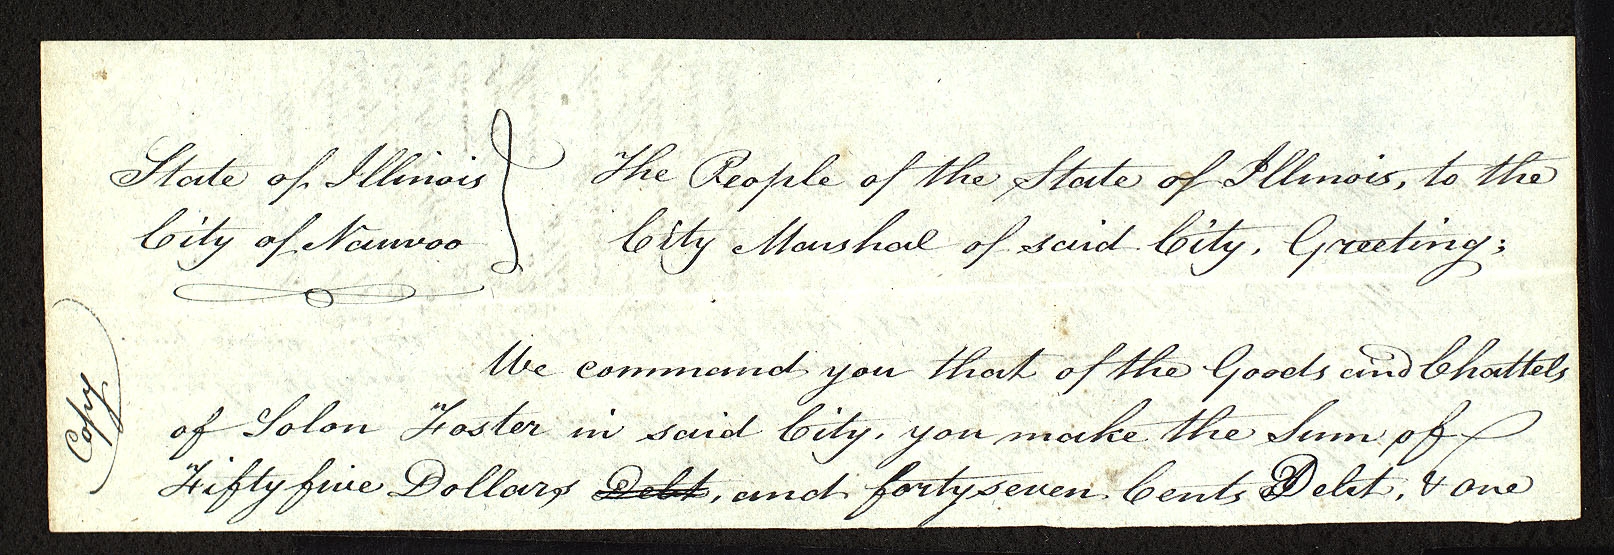 State of Illinois } The People of the State of Illinois, to the
City of Nauvoo } City Marshal of said City, Greeting;
We command you that of the Goods and Chattels
of Solon Foster in said City, you make the Sum of
Fifty five Dollars Debt, and forty seven Cents Debt, & one
Copy